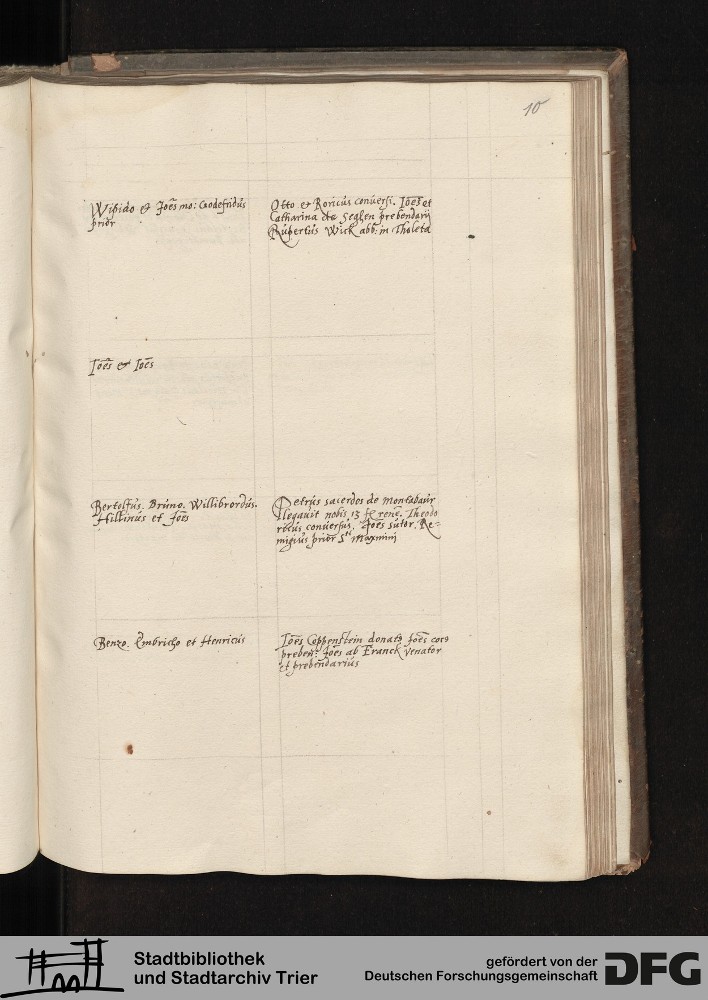 10
Wipido & Joēs mo: Godefridus
prior
Otto et Roricus conversi. Joēs et
Catharina dcā Seghen prebendarij
Rupertus Wick abb: in Tholeta
Joēs & Joēs
Bertolfus. Bruno. Willibrordus.
Hillinus et Joēs
Petrus sacerdos de montabaur
legavit nobis 13 fl renē. Theodo
ricus conversus. Joēs sutor. Re-
migius prior Sti Maximinj
Benzo. Embricho et Henricus
Joēs Coppenstein donatꝰ Joēs
preben: Joēs ab Franck venator
et prebendarius
Stadtbibliothek
und Stadtarchiv Trier
gefördert von der
Deutschen Forschungsgemeinschaft
DFG